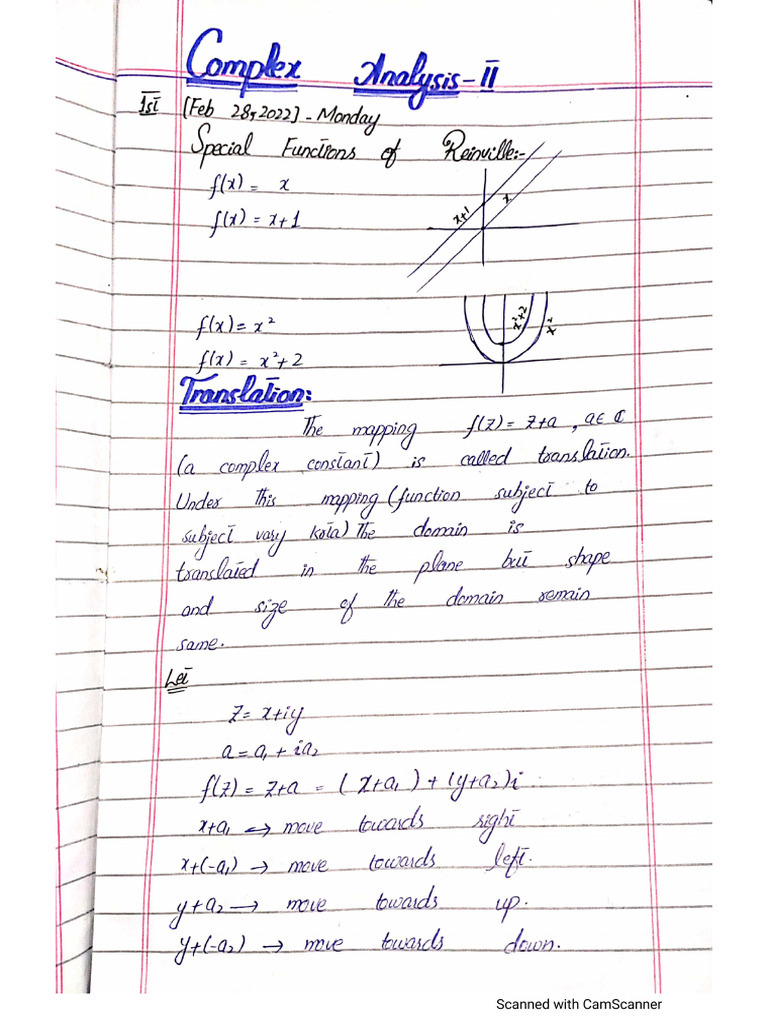 Complex Analysis-II
1st [Feb 28, 2022] - Monday
Special Functions of Reinville:-
f(x) = x
f(x) = x+1
x+1
x
f(x) = x²
f(x) = x²+2
x²+2
x²
Translation:
The mapping f(z) = z+a, a∈ ℂ
(a complex constant) is called translation.
Under this mapping (function subject to
subject vary krta) The domain is
translated in the plane but shape
and size of the domain remain
same.
Let
z = x+iy
a = a₁ + ia₂
f(z) = z+a = (x+a₁) + (y+a₂)i
x+a₁ → move towards right
x+(-a₁) → move towards left.
y+a₂ → move towards up.
y+(-a₂) → move towards down.
Scanned with CamScanner